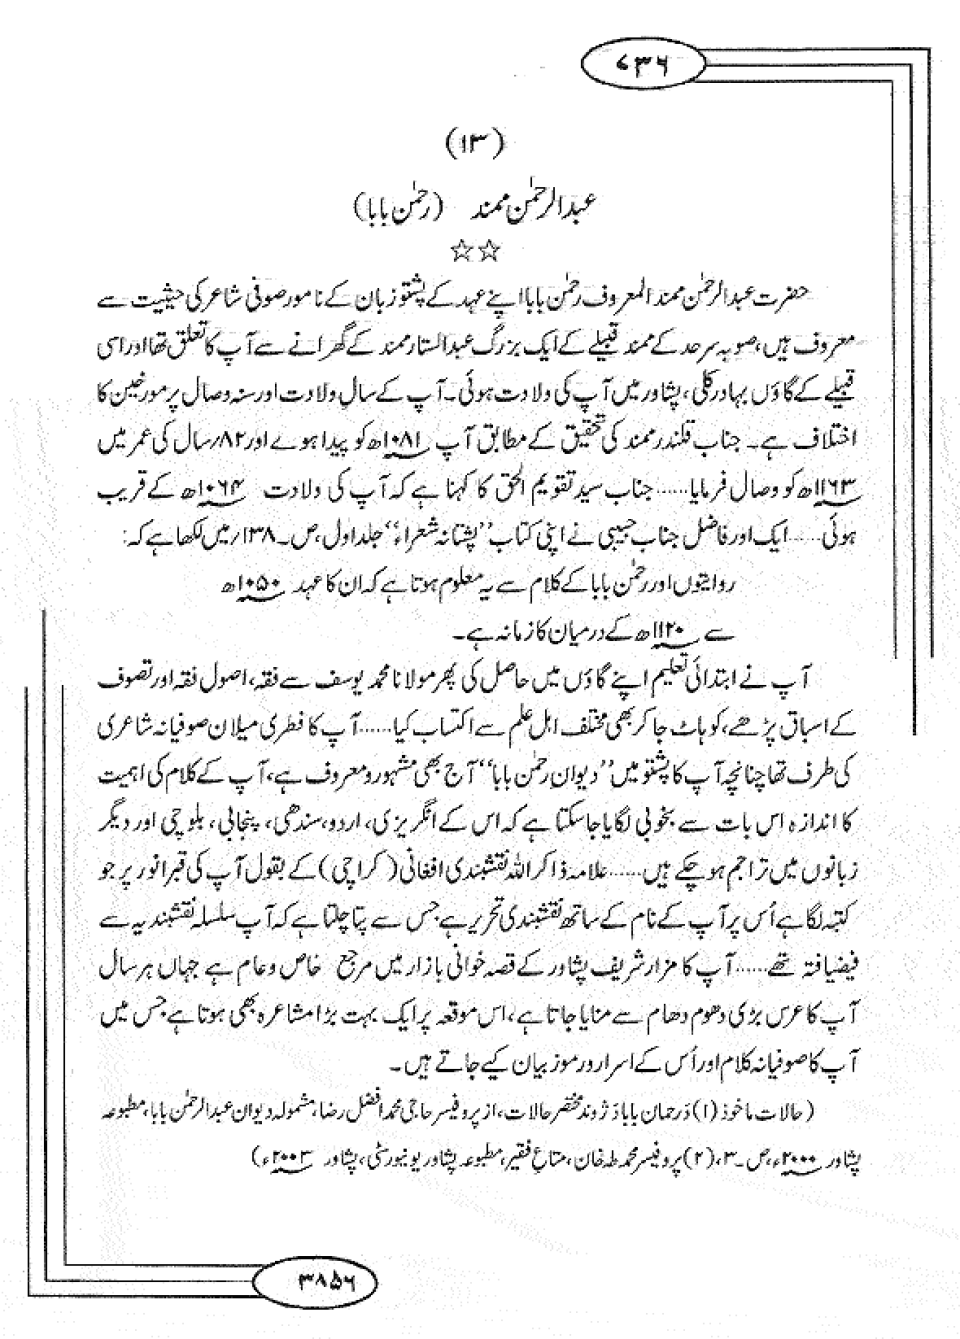 ۷۳۶
(۱۳)
عبدالرحمٰن مہمند (رحمٰن بابا)
☆☆
حضرت عبدالرحمٰن مہمند المعروف رحمٰن بابا اپنے عہد کے پشتو زبان کے نامور صوفی شاعر کی حیثیت سے
معروف ہیں، صوبہ سرحد کے مہمند قبیلے کے ایک بزرگ عبدالستار مہمند کے گھرانے سے آپ کا تعلق تھا اور اسی
قبیلے کے گاؤں بہادر کلی، پشاور میں آپ کی ولادت ہوئی۔ آپ کے سالِ ولادت اور سنہ وصال پر مورخین کا
اختلاف ہے۔ جناب قلندر مہمند کی تحقیق کے مطابق آپ ۱۰۸۱ھ کو پیدا ہوے اور ۸۲؍سال کی عمر میں
۱۱۶۳ھ کو وصال فرمایا...... جناب سید تقویم الحق کا کہنا ہے کہ آپ کی ولادت ۱۰۶۴ھ کے قریب
ہوئی...... ایک اور فاضل جناب حبیبی نے اپنی کتاب ”پشتانہ شعراء“ جلد اول، ص۔۱۳۸؍ میں لکھا ہے کہ:
روایتوں اور رحمٰن بابا کے کلام سے یہ معلوم ہوتا ہے کہ ان کا عہد ۱۰۵۰ھ
سے ۱۱۲۰ھ کے درمیان کا زمانہ ہے۔
آپ نے ابتدائی تعلیم اپنے گاؤں میں حاصل کی پھر مولانا محمد یوسف سے فقہ، اصول فقہ اور تصوف
کے اسباق پڑھے، کوہاٹ جا کر بھی مختلف اہل علم سے اکتساب کیا...... آپ کا فطری میلان صوفیانہ شاعری
کی طرف تھا چنانچہ آپ کا پشتو میں ”دیوان رحمٰن بابا“ آج بھی مشہور و معروف ہے، آپ کے کلام کی اہمیت
کا اندازہ اس بات سے بخوبی لگایا جا سکتا ہے کہ اس کے انگریزی، اردو، سندھی، پنجابی، بلوچی اور دیگر
زبانوں میں تراجم ہو چکے ہیں...... علامہ ذاکر اللہ نقشبندی افغانی (کراچی) کے بقول آپ کی قبر انور پر جو
کتبہ لگا ہے اُس پر آپ کے نام کے ساتھ نقشبندی تحریر ہے جس سے پتا چلتا ہے کہ آپ سلسلہ نقشبندیہ سے
فیضیافتہ تھے...... آپ کا مزار شریف پشاور کے قصہ خوانی بازار میں مرجع خاص و عام ہے جہاں ہر سال
آپ کا عرس بڑی دھوم دھام سے منایا جاتا ہے، اس موقعہ پر ایک بہت بڑا مشاعرہ بھی ہوتا ہے جس میں
آپ کا صوفیانہ کلام اور اُس کے اسرار و رموز بیان کیے جاتے ہیں۔
(حالات ماخوذ (۱) دَ رحمان بابا دَ ژوند مختصر حالات، از پروفیسر حاجی محمد افضل رضا، مشمولہ دیوان عبدالرحمٰن بابا، مطبوعہ
پشاور ۲۰۰۰ء، ص۔۳، (۲) پروفیسر محمد طہ خان، متاع فقیر، مطبوعہ پشاور یونیورسٹی، پشاور ۲۰۰۳ء)
۳۸۵۶